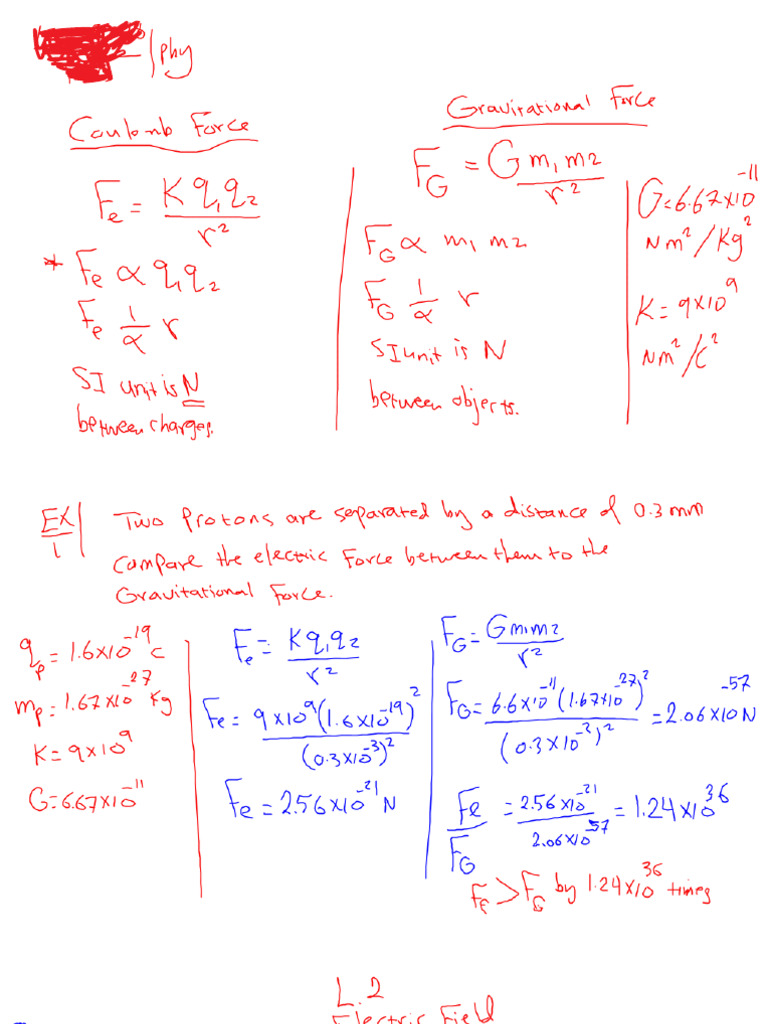 phy
Coulomb Force
Fe = K q₁q₂ / r²
* Fe ∝ q₁q₂
Fe 1/∝ r
SI unit is N
between charges.
Gravitational Force
F_G = G m₁m₂ / r²
F_G ∝ m₁ m₂
F_G 1/∝ r
SI unit is N
between objects.
G = 6.67×10⁻¹¹
Nm²/Kg²
K = 9×10⁹
Nm²/C²
EX/1 Two Protons are separated by a distance of 0.3 mm
Compare the electric Force between them to the
Gravitational Force.
q_p = 1.6×10⁻¹⁹ C
m_p = 1.67×10⁻²⁷ Kg
K = 9×10⁹
G = 6.67×10⁻¹¹
Fe = K q₁q₂ / r²
Fe = 9×10⁹ (1.6×10⁻¹⁹)² / (0.3×10⁻³)²
Fe = 2.56×10⁻²¹ N
F_G = G m₁m₂ / r²
F_G = 6.6×10⁻¹¹ (1.67×10⁻²⁷)² / (0.3×10⁻³)² = 2.06×10⁻⁵⁷ N
Fe / F_G = 2.56×10⁻²¹ / 2.06×10⁻⁵⁷ = 1.24×10³⁶
Fe > F_G by 1.24×10³⁶ times
L.2
Electric Field